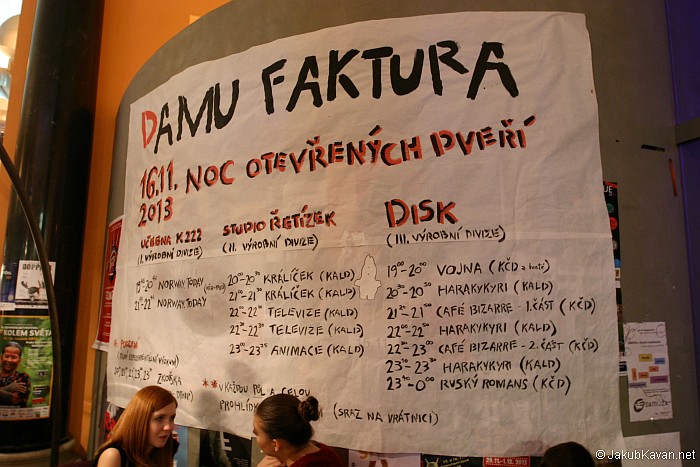 DAMU FAKTURA
16.11. NOC OTEVŘENÝCH DVEŘÍ
2013
UČEBNA K222
(I. VÝROBNÍ DIVIZE)
NORWAY.TODAY
21-22 NORWAY.TODAY
STUDIO ŘETÍZEK
(II. VÝROBNÍ DIVIZE)
KRÁLÍČEK (KALD)
KRÁLÍČEK (KALD)
TELEVIZE (KALD)
TELEVIZE (KALD)
ANIMACE (KALD)
DISK
(III. VÝROBNÍ DIVIZE)
19⁰⁰-20⁰⁰ VOJNA (KČD a hosté)
20³⁰-20⁵⁰ HARAKYKYRI (KALD)
CAFÉ BIZARRE - 1. ČÁST (KČD)
HARAKYKYRI (KALD)
22³⁰-23⁰⁰ CAFÉ BIZARRE - 2. ČÁST (KČD)
HARAKYKYRI (KALD)
RUSKÝ ROMANS (KČD)
** V KAŽDOU PŮL A CELOU
PROHLÍD
(SRAZ NA VRÁTNICI)
KOLEM SVĚTA
DAMUZA
29.11.-1.12.2013
© JakubKavan.net